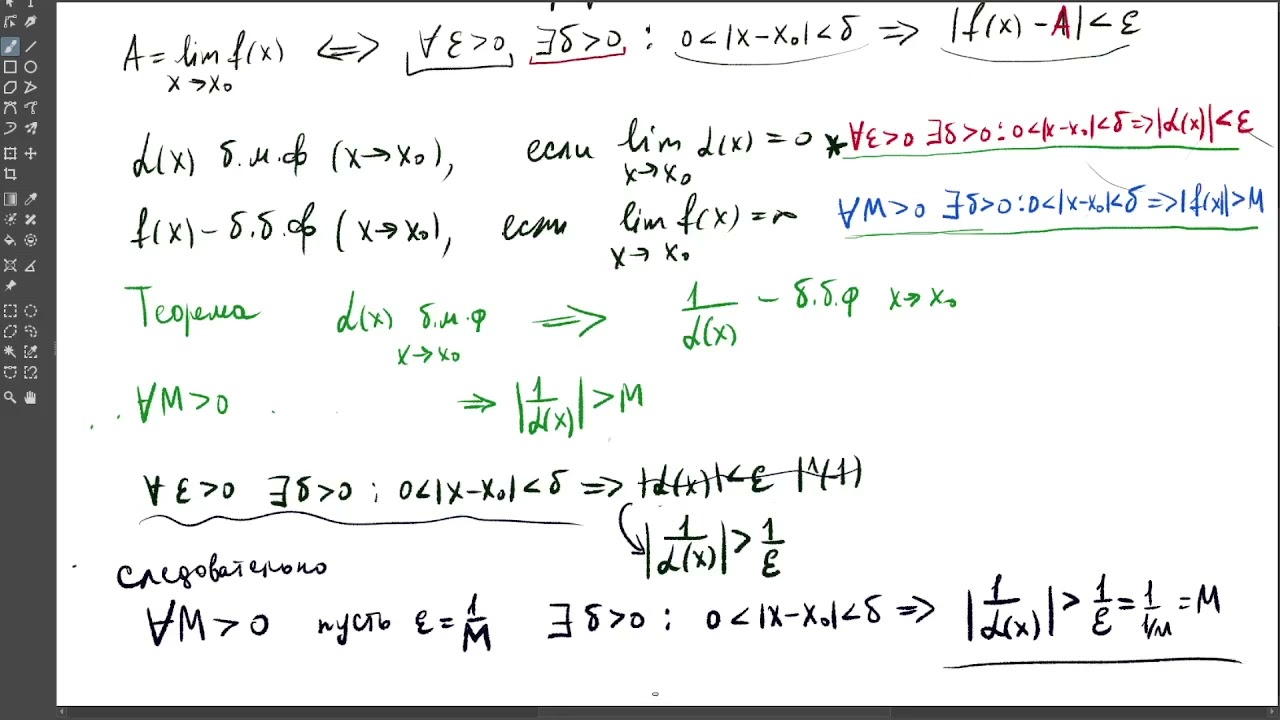 A = lim f(x) ⟺ ∀ε>0 ∃δ>0 : 0<|x-x₀|<δ ⇒ |f(x)-A|<ε
x→x₀
α(x) б.м.ф (x→x₀), если lim α(x) = 0 * ∀ε>0 ∃δ>0 : 0<|x-x₀|<δ ⇒ |α(x)|<ε
x→x₀
f(x) - б.б.ф (x→x₀), если lim f(x) = ∞ ∀M>0 ∃δ>0 : 0<|x-x₀|<δ ⇒ |f(x)|>M
x→x₀
Теорема α(x) б.м.ф ⇒ 1/α(x) - б.б.ф x→x₀
x→x₀
∀M>0 ⇒ |1/α(x)| > M
∀ε>0 ∃δ>0 : 0<|x-x₀|<δ ⇒ |α(x)|<ε
|1/α(x)| > 1/ε
следовательно
∀M>0 пусть ε = 1/M ∃δ>0 : 0<|x-x₀|<δ ⇒ |1/α(x)| > 1/ε = 1/1/M = M